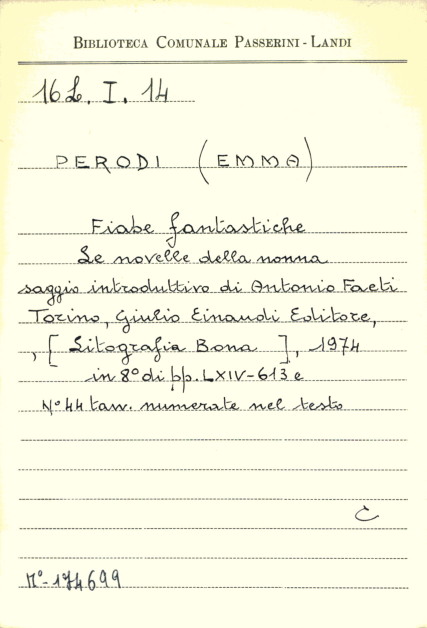 BIBLIOTECA COMUNALE PASSERINI - LANDI
16 L. I. 14
PERODI (EMMA)
Fiabe fantastiche
Le novelle della nonna
saggio introduttivo di Antonio Faeti
Torino, Giulio Einaudi Editore,
, [Litografia Bona], 1974
in 8° di pp. LXIV-613 e
N° 44 tavv. numerate nel testo
C
N° - 174699